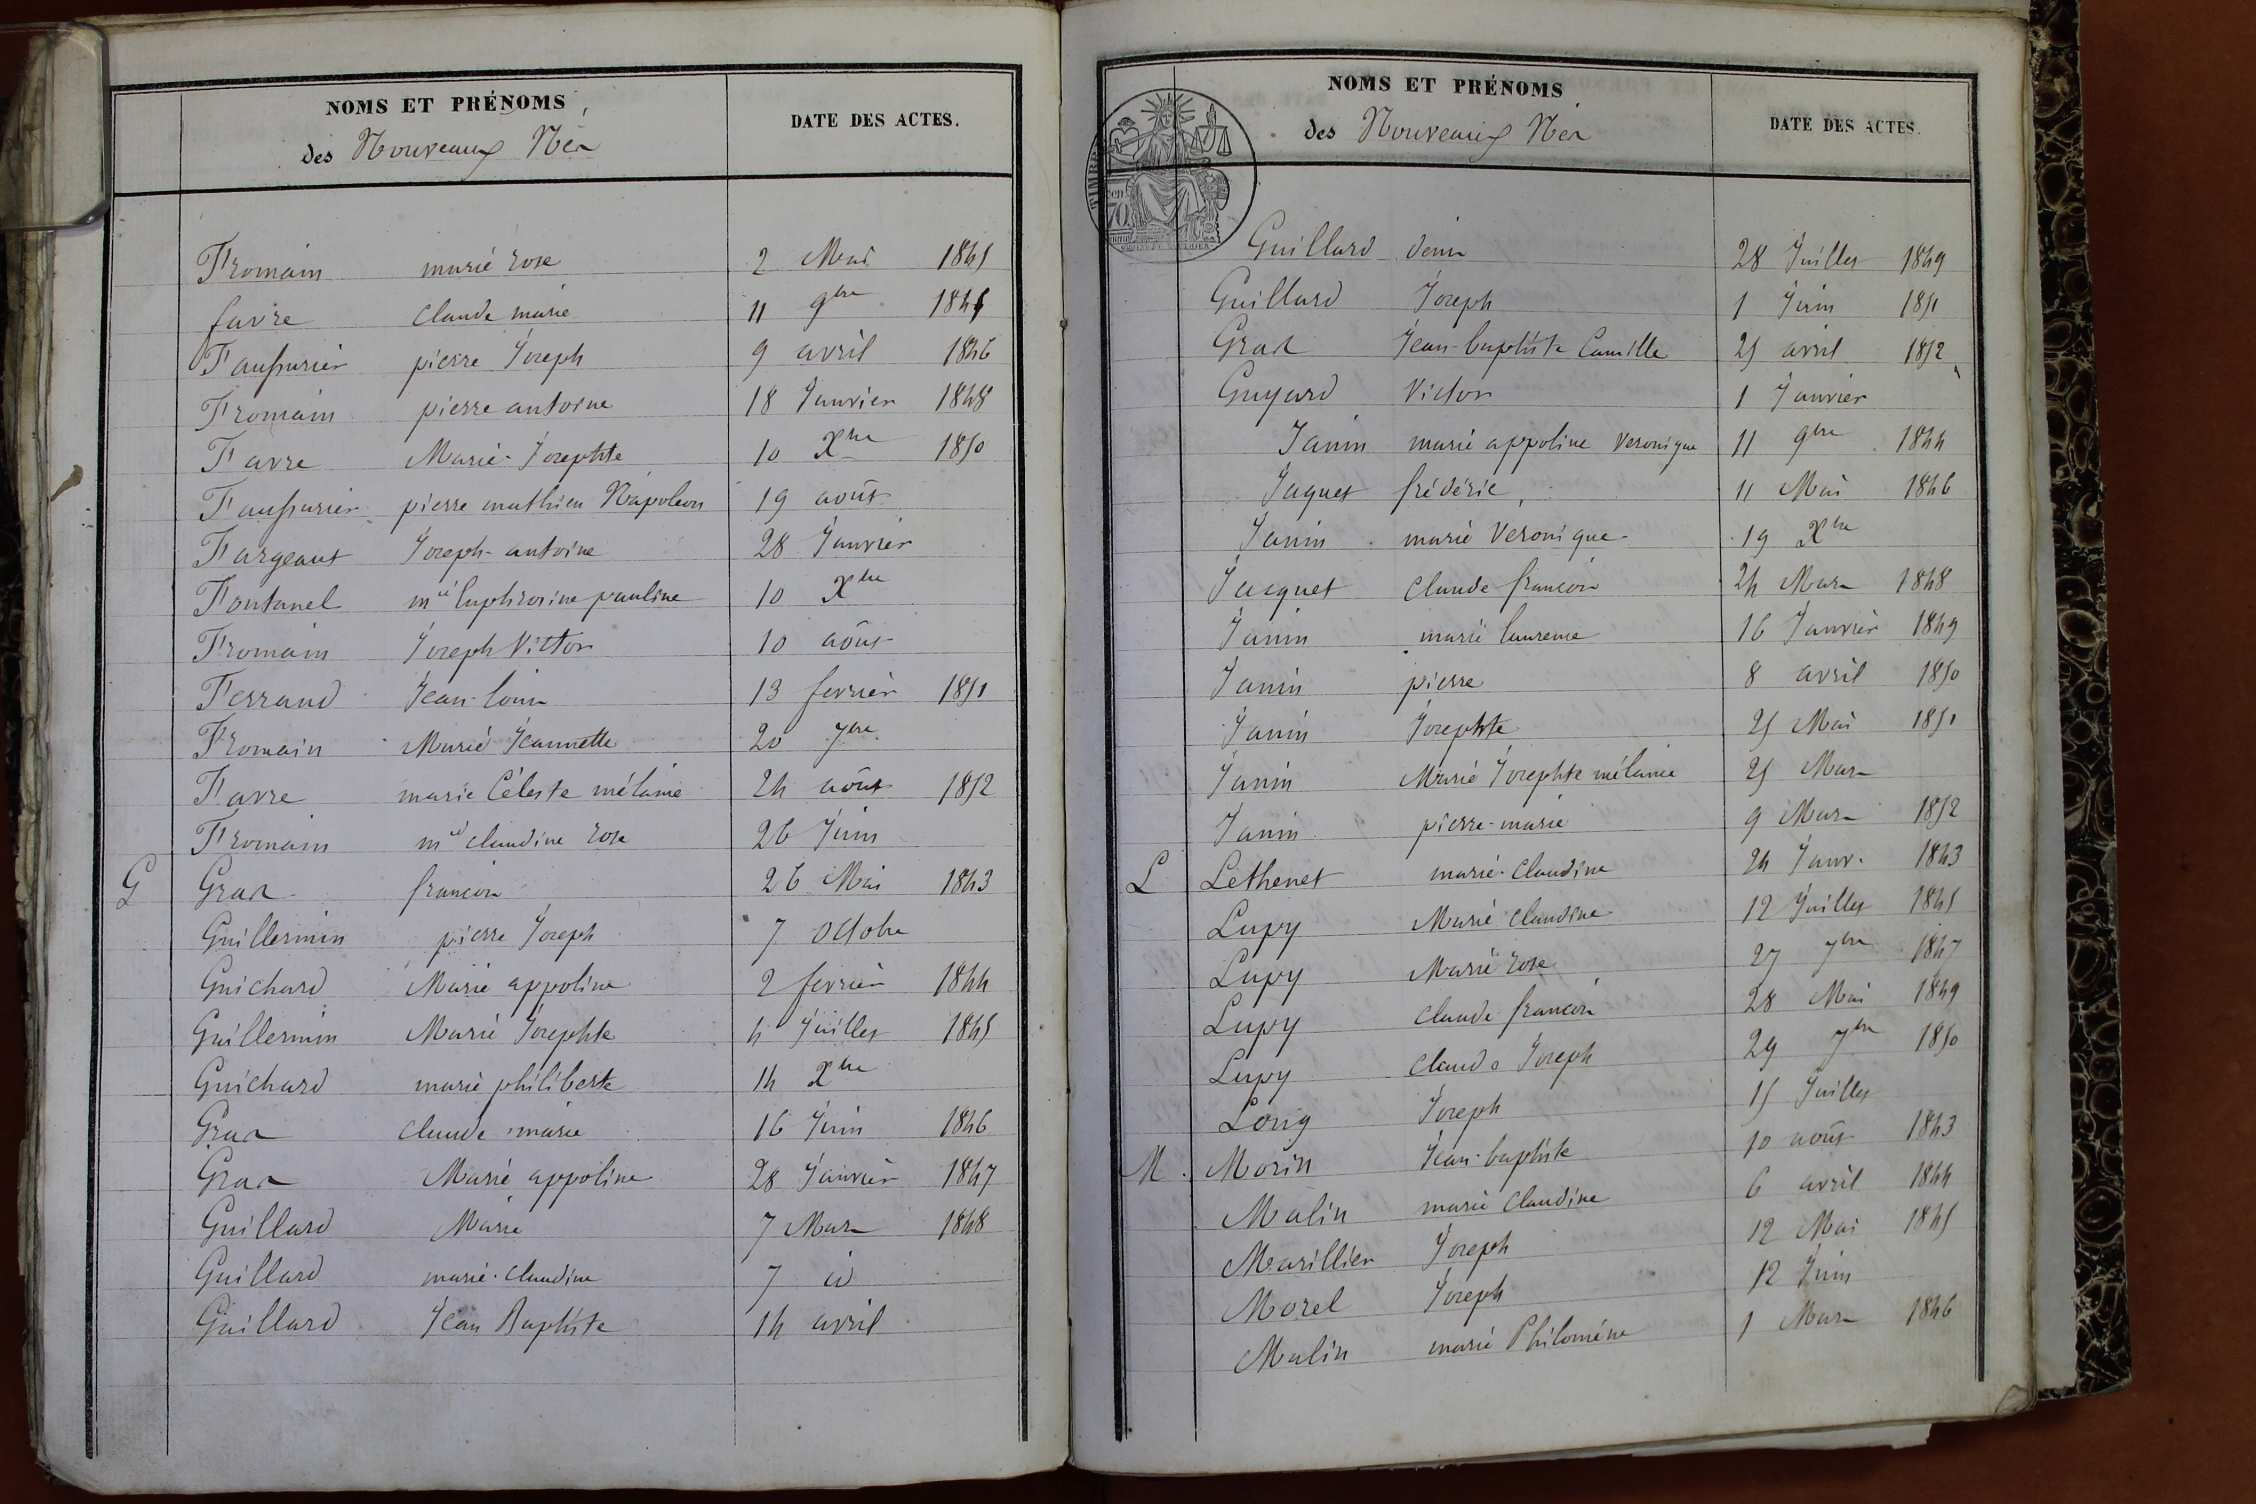 NOMS ET PRÉNOMS
DATE DES ACTES.
des Nouveaux Nés
Fromain marie rose 2 Mai 1845
favre Claude marie 11 9bre 1845
Faussurier pierre Joseph 9 avril 1846
Fromain pierre antoine 18 Janvier 1848
Favre Marie-Josephte 10 Xbre 1850
Faussurier pierre mathieu Napoleon 19 août
Fargeaut Joseph-antoine 28 Janvier
Fontanel mie Euphrosine pauline 10 Xbre
Fromain Joseph Victor 10 août
Ferrand Jean-Louis 13 fevrier 1851
Fromain Marie Jeannette 20 7bre
Favre marie Céleste mélanie 24 août 1852
Fromain mie claudine rose 26 Juin
G Gras francois 26 Mai 1843
Guillermin pierre Joseph 7 octobre
Guichard Marie appoline 2 fevrier 1844
Guillermin Marie Josephte 4 Juillet 1845
Guichard marie philiberte 14 Xbre
Gras Claude marie 16 Juin 1846
Gras Marie appoline 28 Janvier 1847
Guillard Marie 7 Mars 1848
Guillard marie-claudine 7 id
Guillard Jean Baptiste 14 avril
NOMS ET PRÉNOMS
DATE DES ACTES.
des Nouveaux Nés
TIMBRE
70
Guillard denis 28 Juillet 1849
Guillard Joseph 1 Juin 1851
Gras Jean-baptiste Camille 25 avril 1852
Guyard Victor 1 Janvier
Janin marie appoline Veronique 11 9bre 1844
Jaquet frédéric 11 Mai 1846
Janin marie Véronique 19 Xbre
Jacquet Claude francois 24 Mars 1848
Janin marie laurence 16 Janvier 1849
Janin pierre 8 avril 1850
Janin Josephte 25 Mai 1851
Janin Marie Josephte mélanie 25 Mars
Janin pierre-marie 9 Mars 1852
L Lethenet marie-Claudine 24 Janv. 1843
Lupy Marie Claudine 12 Juillet 1845
Lupy Marie rose 27 7bre 1847
Lupy Claude francois 28 Mai 1849
Lupy Claude Joseph 29 7bre 1850
Long Joseph 15 Juillet
M. Morin Jean-baptiste 10 août 1843
Malin marie Claudine 6 avril 1844
Marillier Joseph 12 Mai 1845
Morel Joseph 12 Juin
Malin marie Philomène 1 Mars 1846